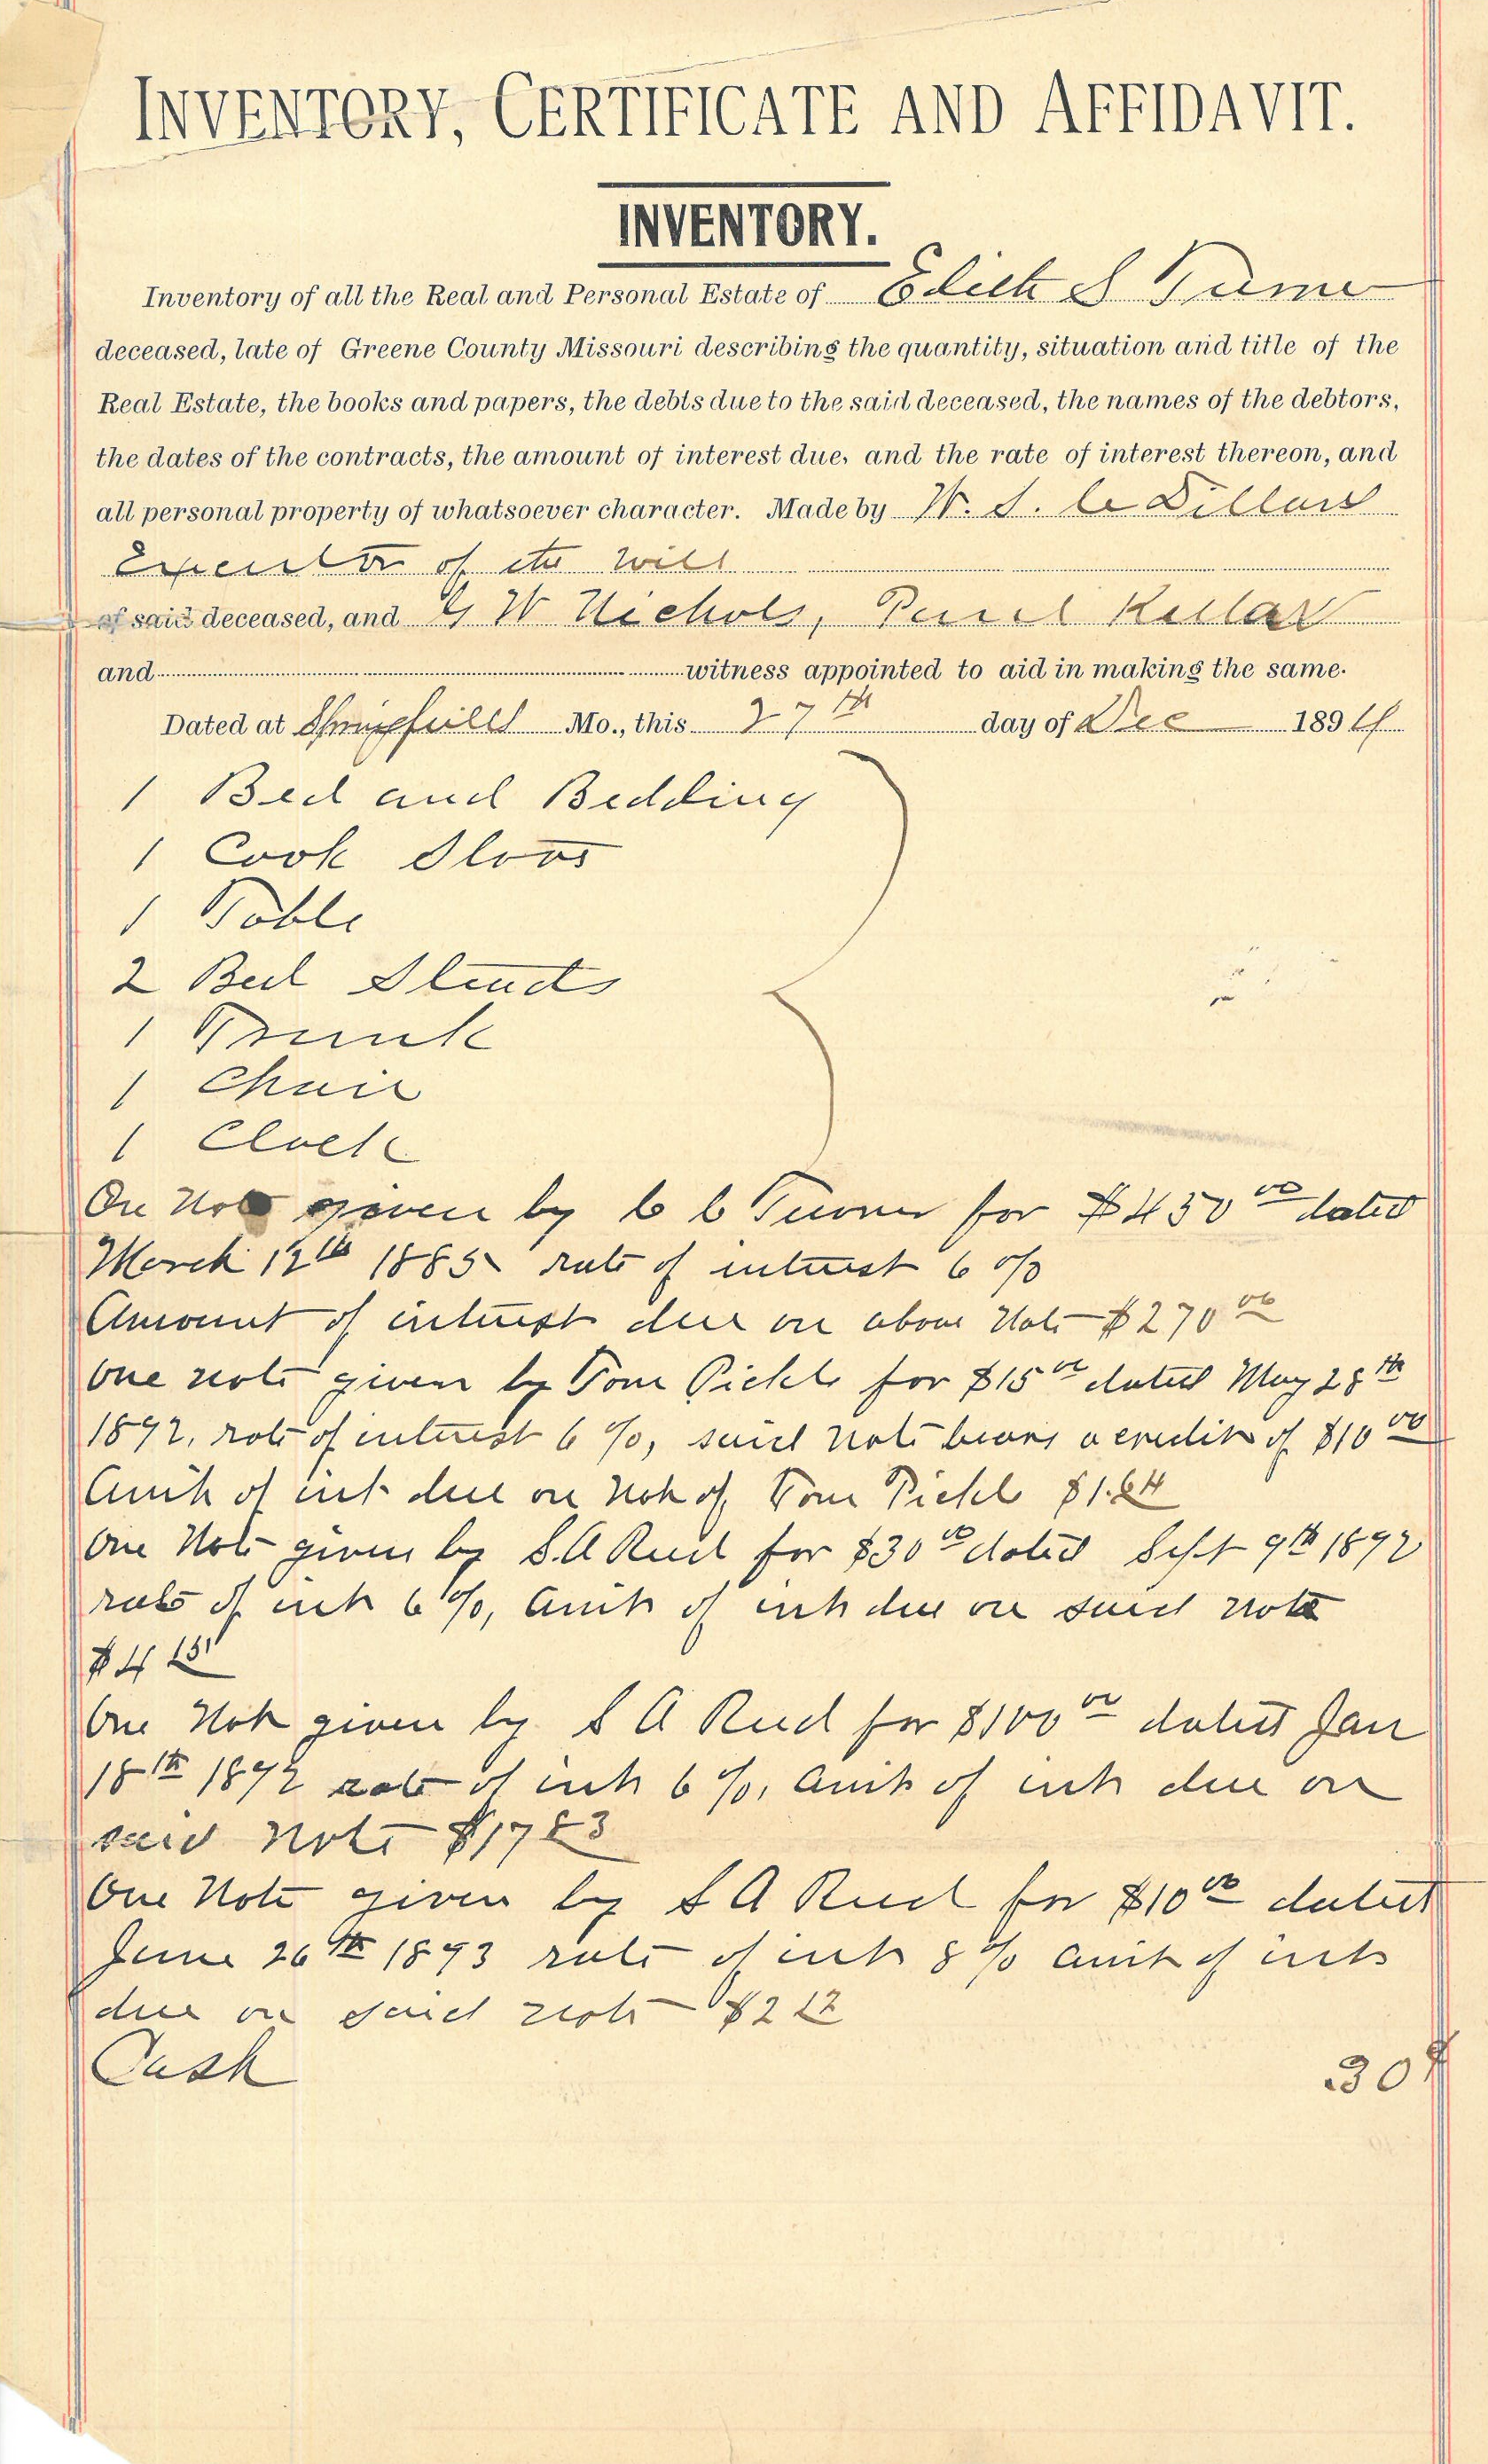 INVENTORY, CERTIFICATE AND AFFIDAVIT.
INVENTORY.
Inventory of all the Real and Personal Estate of S Turner
deceased, late of Greene County Missouri describing the quantity, situation and title of the
Real Estate, the books and papers, the debts due to the said deceased, the names of the debtors,
the dates of the contracts, the amount of interest due, and the rate of interest thereon, and
all personal property of whatsoever character. Made by W. S. C Dillard
Executor of the will
of said deceased, and G W Nichols,
and witness appointed to aid in making the same.
Dated at Springfield Mo., this 27th day of Dec 1894
1 Bed and Bedding
1 Cook Stove
1 Table
2 Bed Steads
1 Trunk
1 Chair
1 Clock
One Note given by C C Turner for $450 00 dated
March 12th 1885 rate of interest 6 %
Amount of interest due on above Note $270 00
One note given by Tom Pickle for $15 00 dated May 28th
1892, rate of interest 6 %, said note bears a credit of $10 00
Amt of int due on Note of Tom Pickle $1.64
One Note given by S.A Reed for $30 00 dated Sept 9th 1892
rate of int 6 %, Amt of int due on said note
$4 15
One Note given by S A Reed for $100 00 dated Jan
18th 1892 rate of int 6 %, Amt of int due on
said note $17 83
One Note given by S A Reed for $10 00 dated
June 26th 1893 rate of int 8 % amt of int
due on said note $2 12
Cash .30¢